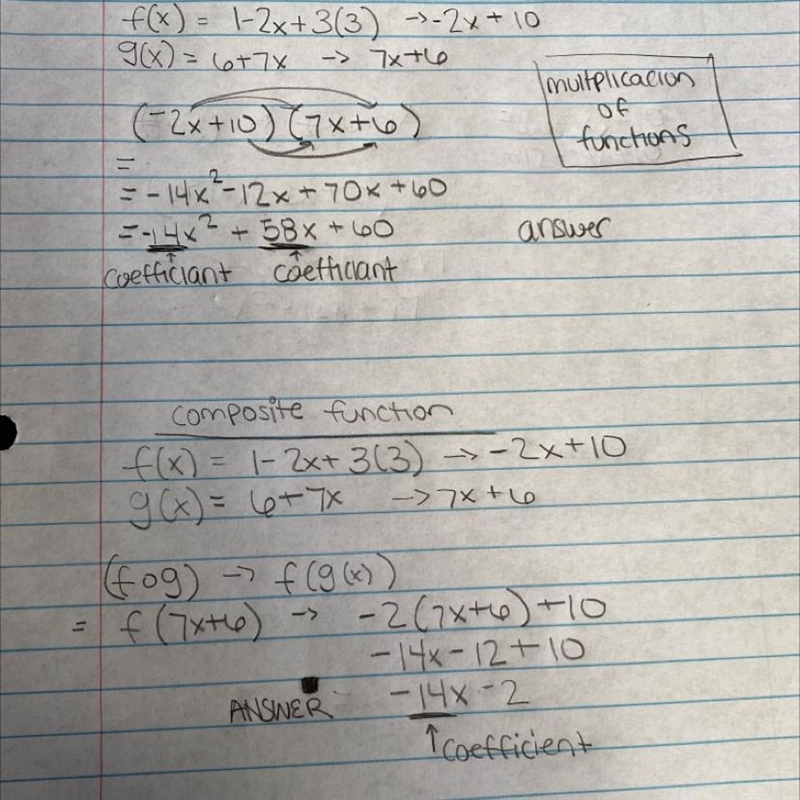 f(x) = 1-2x+3(3) → -2x+10
g(x) = 6+7x → 7x+6
multplicacion
of
functions
(-2x+10)(7x+6)
=
= -14x² -12x + 70x + 60
= -14x² + 58x + 60 answer
↑ ↑
coefficiant coefficiant
composite function
f(x) = 1-2x+3(3) → -2x+10
g(x) = 6+7x → 7x+6
(fog) → f(g(x))
= f(7x+6) → -2(7x+6)+10
-14x-12+10
ANSWER -14x-2
↑ coefficient